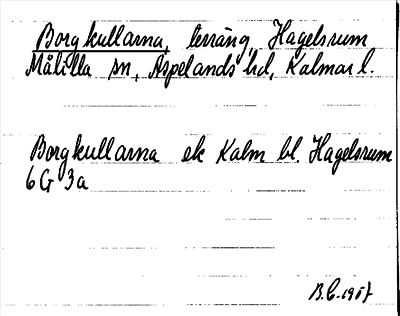 Borgkullarna, terräng, Hagelsrum
Målilla sn, Aspelands hd, Kalmar l.
Borgkullarna ek Kalm bl. Hagelsrum
6G 3a
B.C. 1957